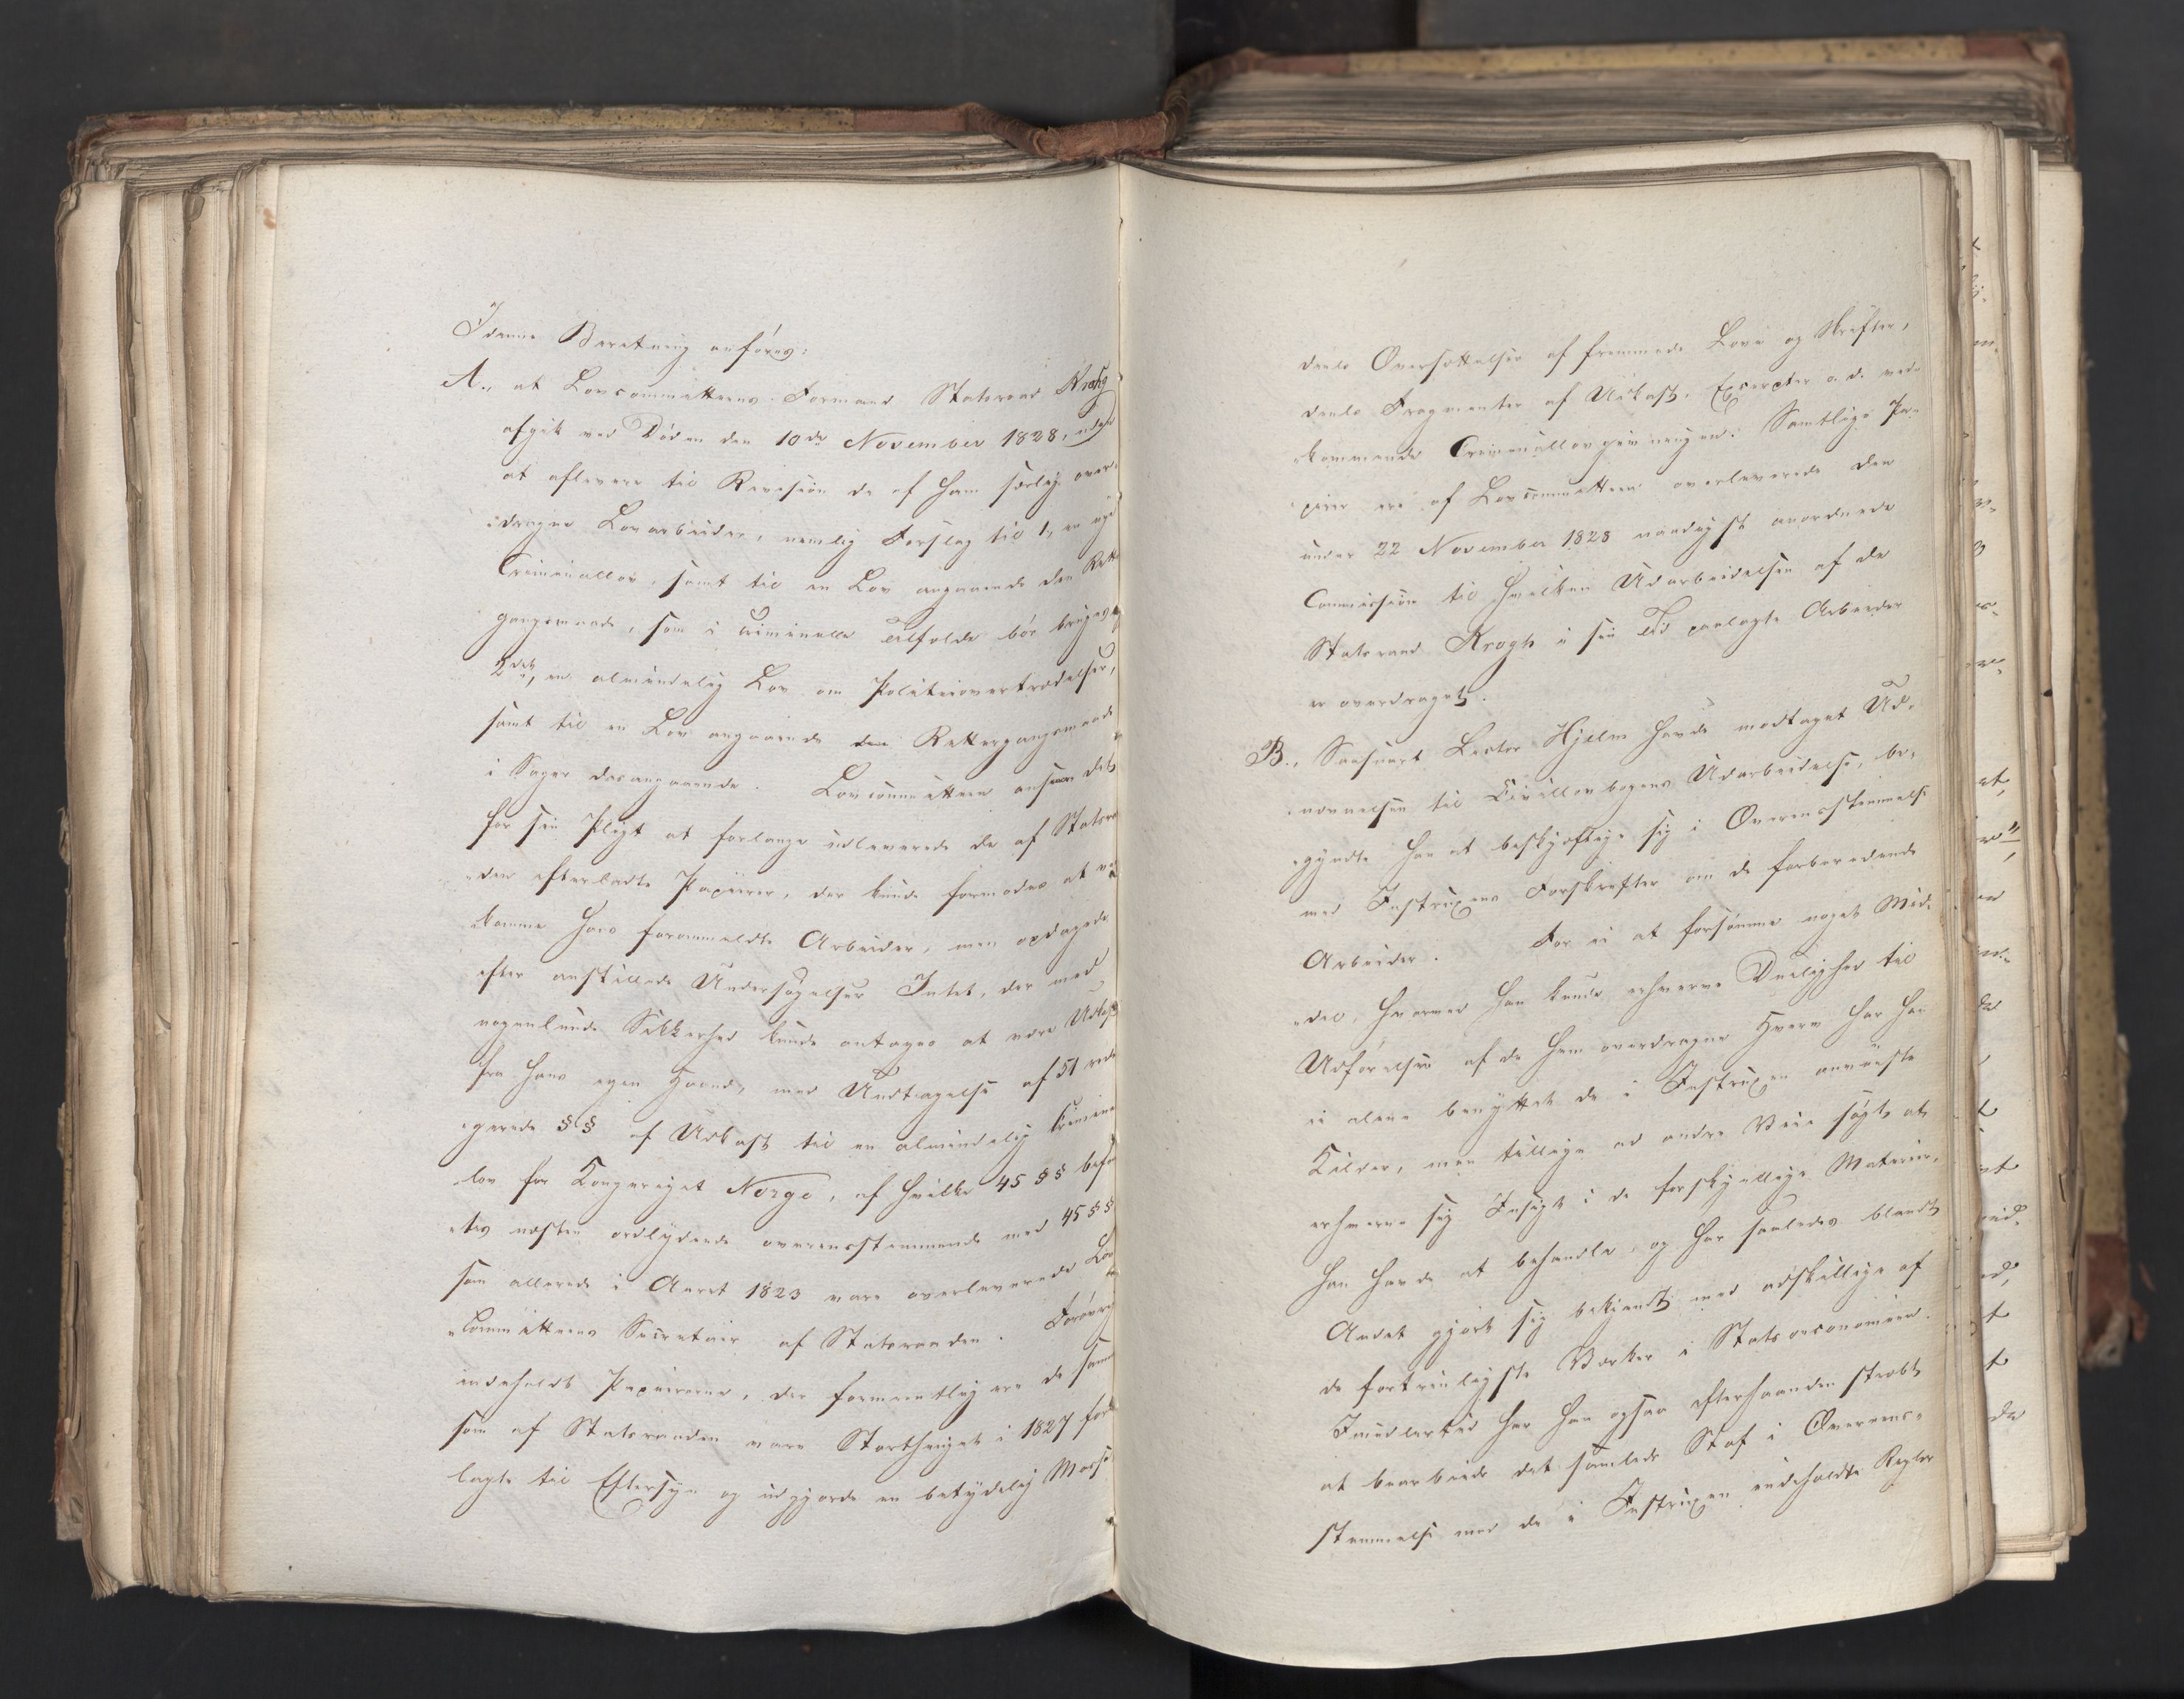 I denne Beretning anføres:
A., at Lovcommitteens Formand Statsraad Krog
afgik ved Døden den 10de November 1828, uden
at aflevere til Revision de af ham særlig over-
dragne Lovarbeider, nemlig Forslag til 1, en nye
Criminallov, samt til en Lov angaaende den Rett
gangsmaade, som i criminelle Tilfælde bør bruges,
2det, en almindelig Lov om Politieovertrædelser,
samt til en Lov angaaende den Rettergangsmaade
i Sager desangaaende. Lovcommitteen ansaae det
for sin Pligt at forlange udleverede de af Statsra
den efterladte Papiirer, der kunde formodes at ved
komme hans forommeldte Arbeider, men opdagede
efter anstillede Undersøgelser Intet, der med
nogenlunde Sikkerhed kunde antages at være Udkast
fra hans egen Haand, med Undtagelse af 51 redi
gerede §§ af Udkast til en almindelig Crimina
lov for Kongeriget Norge, af hvilke 45 §§ befa
tes næsten ordlydende overensstemmende med 45 §§
som allerede i Aaret 1823 vare overleverede Lov
Committeens Secretair af Statsraaden. Forøvrigt
indeholdt Papirerne, der formeentlig ere de samm
som af Statsraaden vare Storthinget i 1827 fore
lagte til Eftersyn og udgjorde en betydelig Masse
deels Oversættelser af fremmede Love og Skrifter,
deels Fragmenter af Udkast, Excerpter o. d. ved-
kommende Criminallovgivningen. Samtlige Pa-
pirer ere af Lovcommitteen overleverede den
under 22 November 1828 naadigst anordnede
Commission til hvilken Udarbeidelsen af de
Statsraad Krogh i sin Tid paalagte Arbeider
er overdraget.
B., Saasnart Lector Hjelm havde modtaget Ud-
nævnelsen til Civillovbogens Udarbeidelse, be-
gyndte han at beskjæftige sig i Overensstemmelse
med Instruxens Forskrifter om de forberedende
Arbeider. For ei at forsømme noget Mid-
del, hvormed han kunde erhverve Duelighed til
Udførelsen af de ham overdragne Hverv har han
ei alene benyttet de i Instruxen anviiste
Kilder, men tillige ad andre Veie søgt at
erhverve sig Indsigt i de forskjellige Materier,
han havde at behandle, og har saaledes blandt
Andet gjort sig bekjendt med adskillige af
de fortrinligste Værker i Statsoeconomien.
Imidlertid har han ogsaa efterhaanden stræbt
at bearbeide det samlede Stof i Overeens-
stemmelse med de i Instruxen indeholdte Regler